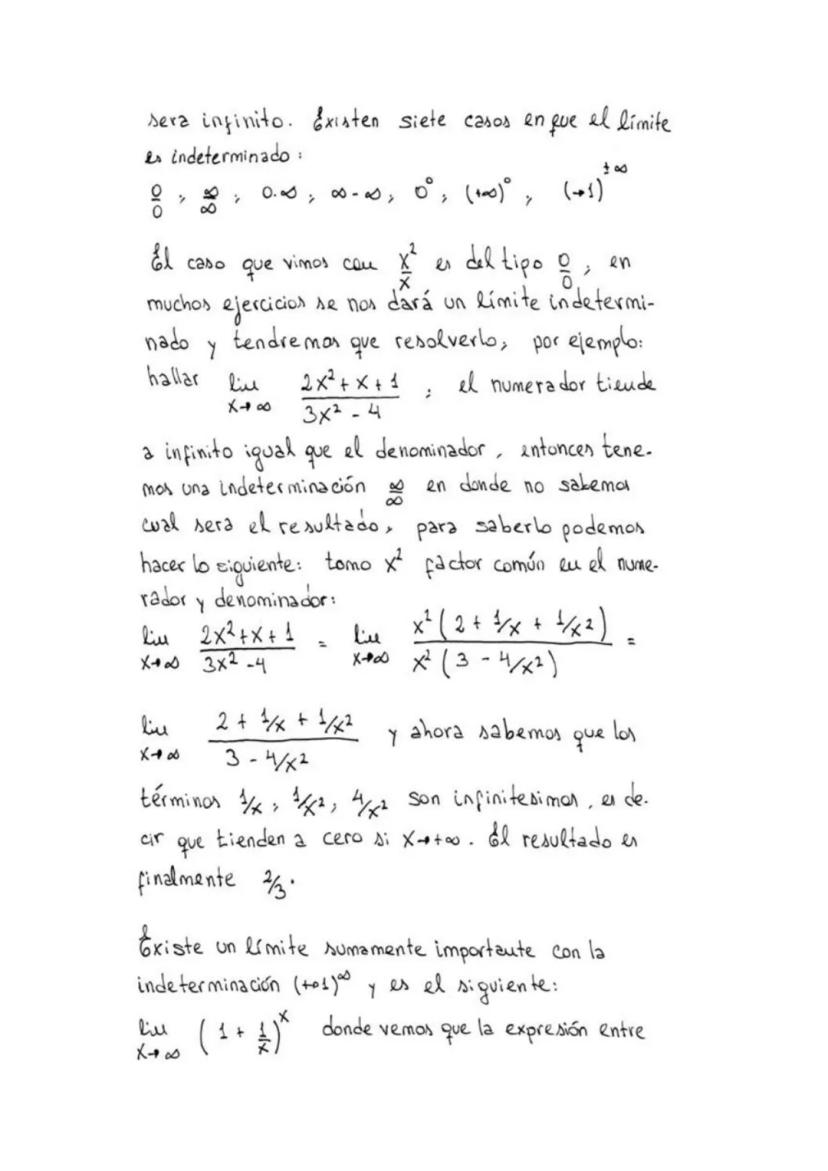 sera infinito. Existen siete casos en que el límite
es indeterminado:
0/0, ∞/∞, 0.∞, ∞-∞, 0⁰, (+∞)⁰, (→1)^±∞
El caso que vimos con x²/x es del tipo 0/0, en
muchos ejercicios se nos dará un límite indetermi-
nado y tendremos que resolverlo, por ejemplo:
hallar lim x→∞ (2x²+x+1)/(3x²-4), el numerador tiende
a infinito igual que el denominador, entonces tene-
mos una indeterminación ∞/∞ en donde no sabemos
cual sera el resultado, para saberlo podemos
hacer lo siguiente: tomo x² factor común en el nume-
rador y denominador:
lim x→∞ (2x²+x+1)/(3x²-4) = lim x→∞ x²(2 + 1/x + 1/x²)/x²(3 - 4/x²) =
lim x→∞ (2 + 1/x + 1/x²)/(3 - 4/x²) y ahora sabemos que los
términos 1/x, 1/x², 4/x² son infinitesimos, es de-
cir que tienden a cero si x→+∞. El resultado es
finalmente 2/3.
Existe un límite sumamente importante con la
indeterminación (→1)^∞ y es el siguiente:
lim x→∞ (1 + 1/x)^x donde vemos que la expresión entre